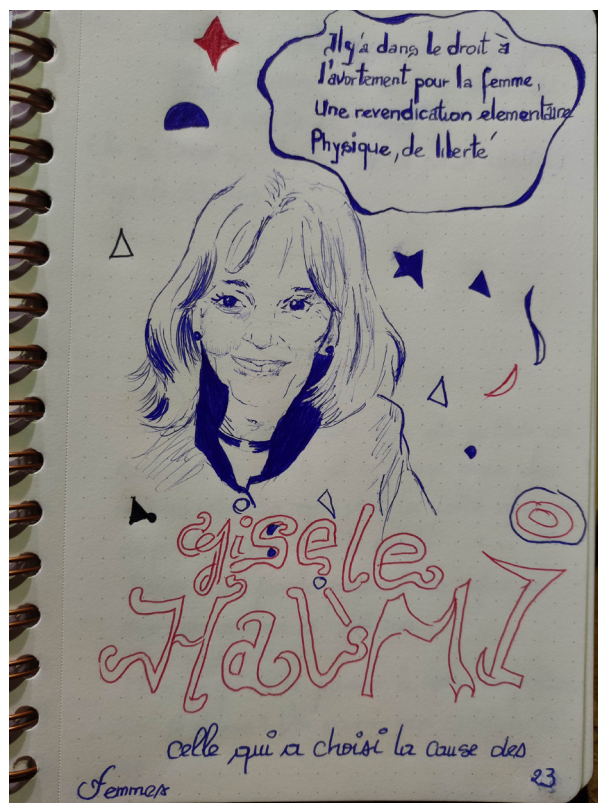 Il y a dans le droit à
l'avortement pour la femme,
Une revendication elementaire
Physique, de liberté
Gisèle
HalìMI
celle qui a choisi la cause des
Femmes
23